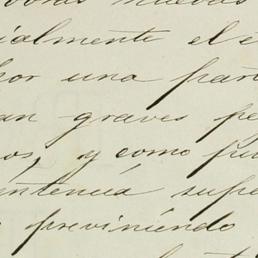 nuevas
ialmente el
por una par
an graves pe
os, y como fu
entencia supe
previniendo